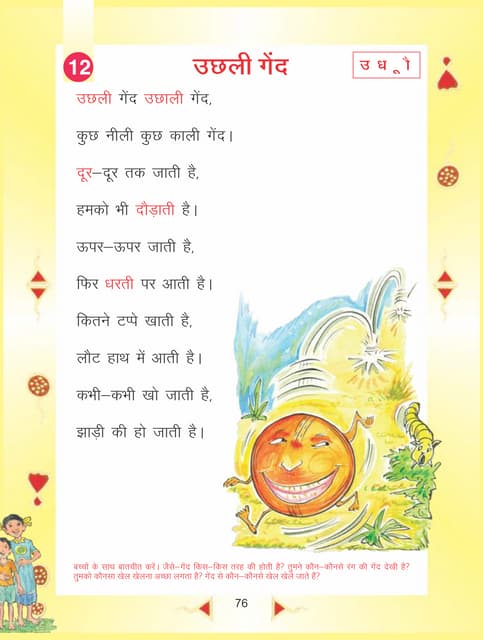 12
उछली गेंद
उ ध ू ौ
उछली गेंद उछाली गेंद,
कुछ नीली कुछ काली गेंद।
दूर–दूर तक जाती है,
हमको भी दौड़ाती है।
ऊपर–ऊपर जाती है,
फिर धरती पर आती है।
कितने टप्पे खाती है,
लौट हाथ में आती है।
कभी–कभी खो जाती है,
झाड़ी की हो जाती है।
बच्चों के साथ बातचीत करें। जैसे–गेंद किस–किस तरह की होती है? तुमने कौन–कौनसे रंग की गेंद देखी है?
तुमको कौनसा खेल खेलना अच्छा लगता है? गेंद से कौन–कौनसे खेल खेले जाते हैं?
76